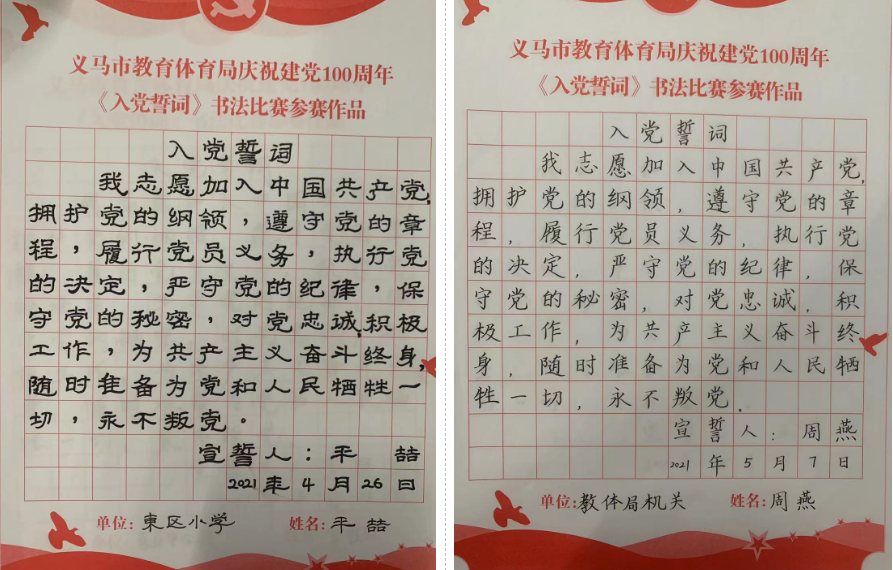 义马市教育体育局庆祝建党100周年
《入党誓词》书法比赛参赛作品
入党誓词
我志愿加入中国共产党,
拥护党的纲领,遵守党的章
程,履行党员义务,执行党
的决定,严守党的纪律,保
守党的秘密,对党忠诚,积极
工作,为共产主义奋斗终身,
随时准备为党和人民牺牲一
切,永不叛党。
宣誓人:平 喆
2021年4月26日
单位:東区小学 姓名:平 喆
义马市教育体育局庆祝建党100周年
《入党誓词》书法比赛参赛作品
入党誓词
我志愿加入中国共产党,
拥护党的纲领,遵守党的章
程,履行党员义务,执行党
的决定,严守党的纪律,保
守党的秘密,对党忠诚,积
极工作,为共产主义奋斗终
身,随时准备为党和人民牺
牲一切,永不叛党.
宣誓人:周燕
2021年5月7日
单位:教体局机关 姓名:周燕